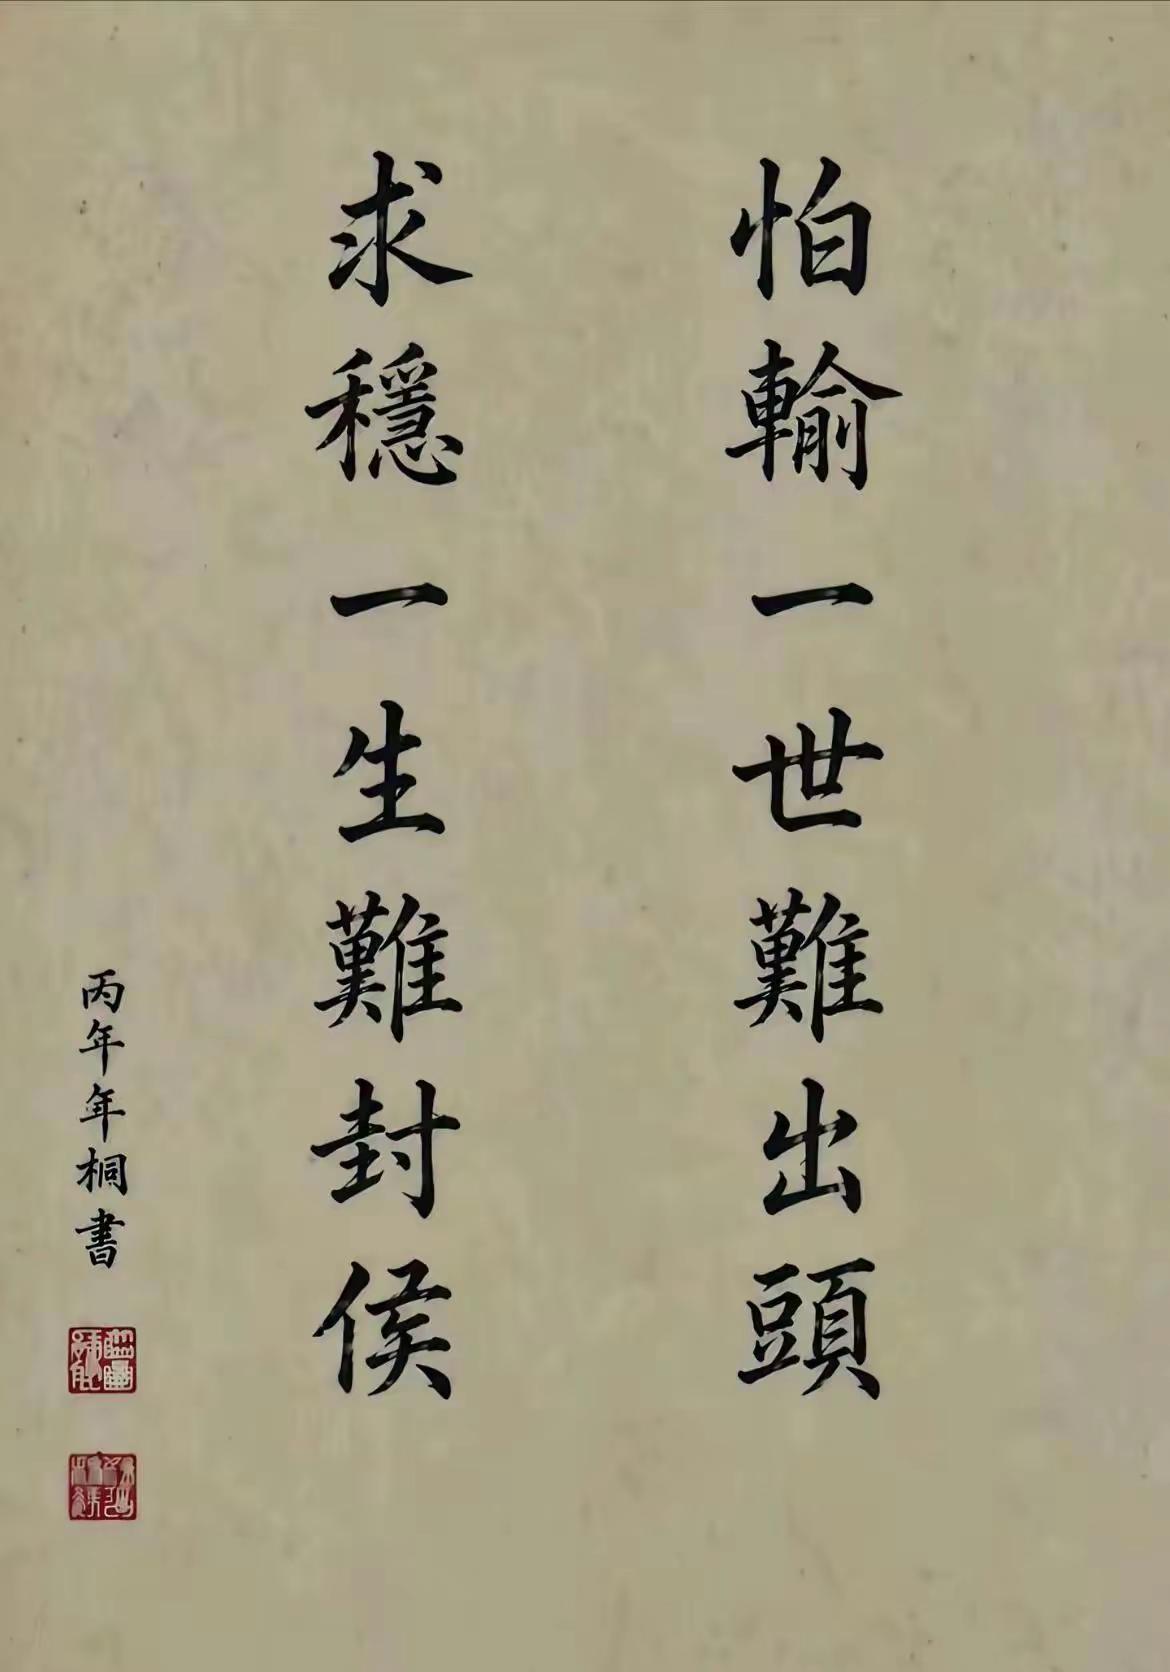 怕輸一世難出頭
求穩一生難封侯
丙年年桐書